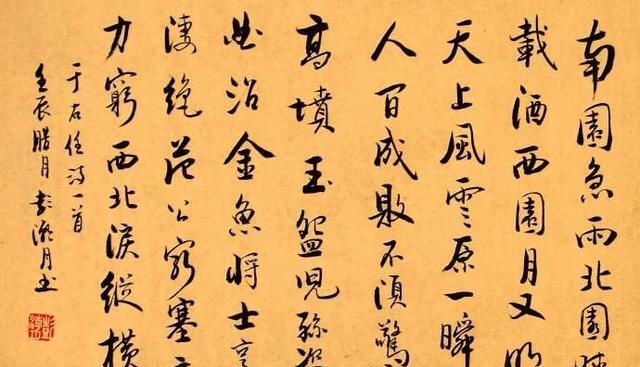 南園急雨北園晴
載酒西園月又明
天上風雲原一瞬
人間成敗不須驚
高墳玉盌兒孫盜
曲沼金魚將士
淒絕范公窮塞
力窮西北淚縱橫
于右任詩一首
壬辰臘月彭月書